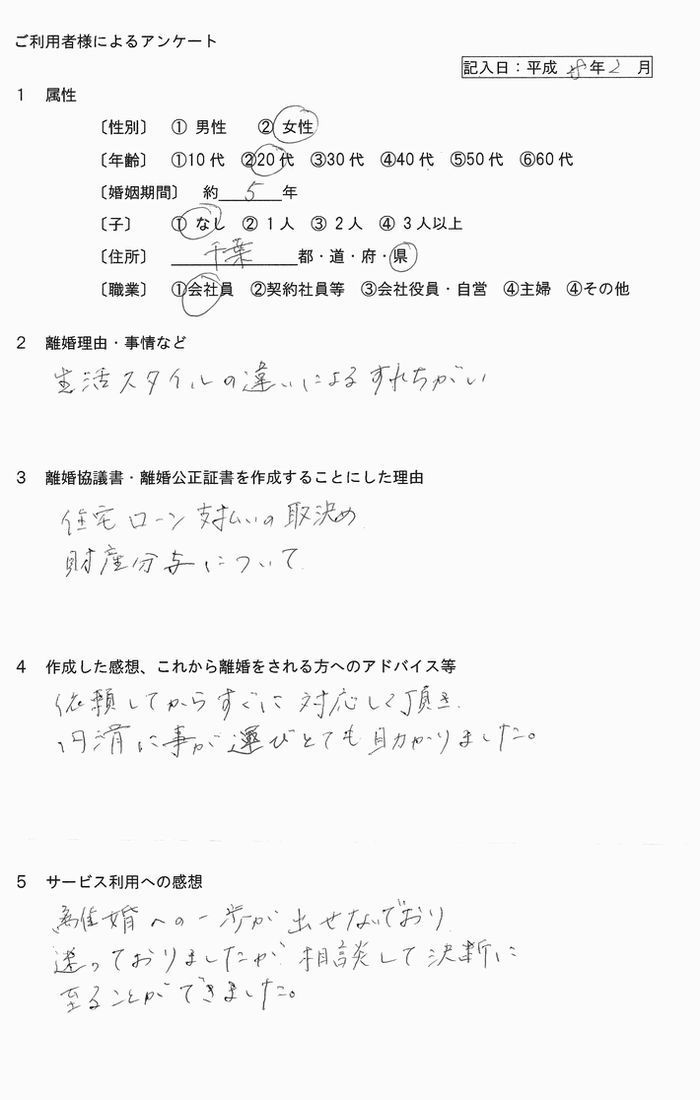 ご利用者様によるアンケート
記入日：平成 年2月
1 属性
〔性別〕 ① 男性 ② 女性
〔年齢〕 ①10代 ②20代 ③30代 ④40代 ⑤50代 ⑥60代
〔婚姻期間〕 約 5 年
〔子〕 ① なし ② 1人 ③ 2人 ④ 3人以上
〔住所〕 千葉 都・道・府・県
〔職業〕 ①会社員 ②契約社員等 ③会社役員・自営 ④主婦 ④その他
2 離婚理由・事情など
生活スタイルの違いによるすれちがい
3 離婚協議書・離婚公正証書を作成することにした理由
住宅ローン支払いの取決め
財産分与について
4 作成した感想、これから離婚をされる方へのアドバイス等
依頼してからすぐに対応して頂き
円滑に事が運びとても助かりました。
5 サービス利用への感想
離婚への一歩が出せないでおり
迷っておりましたが相談して決断に
至ることができました。